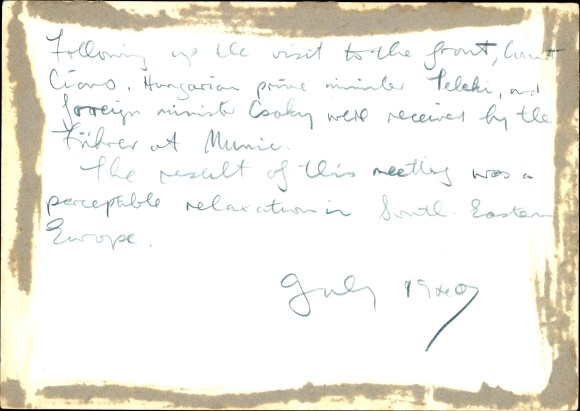 Following up the visit to the front, Count
Ciano, Hungarian prime minister Teleki, and
foreign minister Csaky were received by the
Führer at Munic.
The result of this meeting was a
perceptable relaxation in South-Eastern
Europe.
July 1940